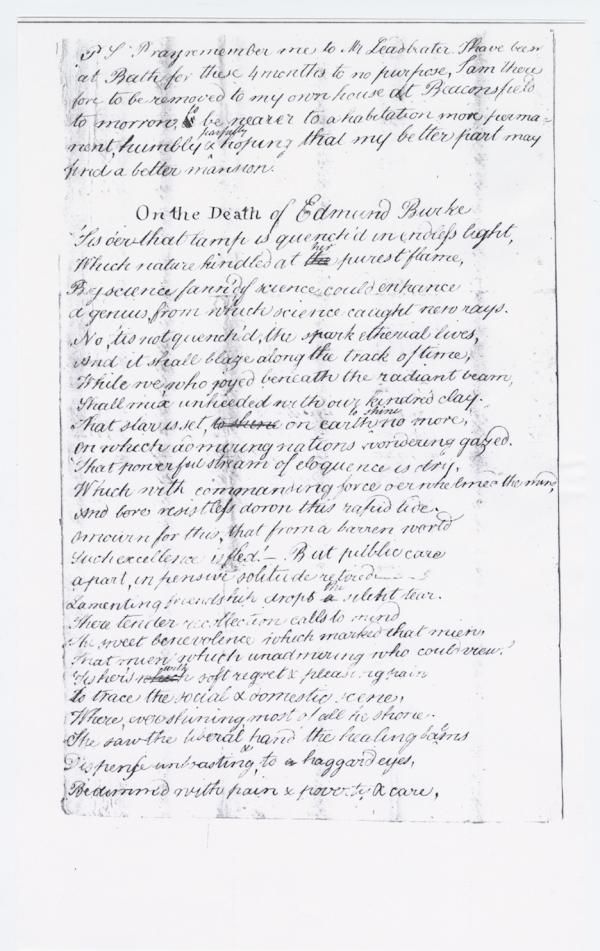 P S Pray remember me to Mr Leadbeater I have been
at Bath for these 4 months to no purpose, I am there
fore to be removed to my own house at Beaconsfield
to morrow, to be nearer to a habitation more perma-
nent, humbly & fearfully hoping that my better part may
find a better mansion.
On the Death of Edmund Burke
'Tis o'er that lamp is quench'd in endless light,
Which nature kindled at the her purest flame,
By science fann'd if science could enhance
a genius, from which science caught new rays.
No, tis not quench'd, the spark etherial lives,
And it shall blaze along the track of time,
While we, who joyed beneath the radiant beam,
Shall mix unheeded with our kindred clay.
That star is set, to shine on earth to shine no more,
On which admiring nations wondering gazed.
That powerful stream of eloquence is dry,
Which with commanding force overwhelmed the mind,
And bore resistless down this rapid tide.
mourn for this, that from a barren world
Such excellence is fled! – But public care
apart, in pensive solitude retired
Lamenting friendship drops a the silent tear.
There tender recollection calls to mind
The sweet benevolence which marked that mien,
That mien which unadmiring who could view!
'Tis her's with soft regret & pleasing pain
to trace the social & domestic scene,
Where, ever shining most of all he shone.
She saw the liberal hand the healing balms
Dispense unboasting, to a haggard eyes,
Bedimmed with pain & poverty & care,